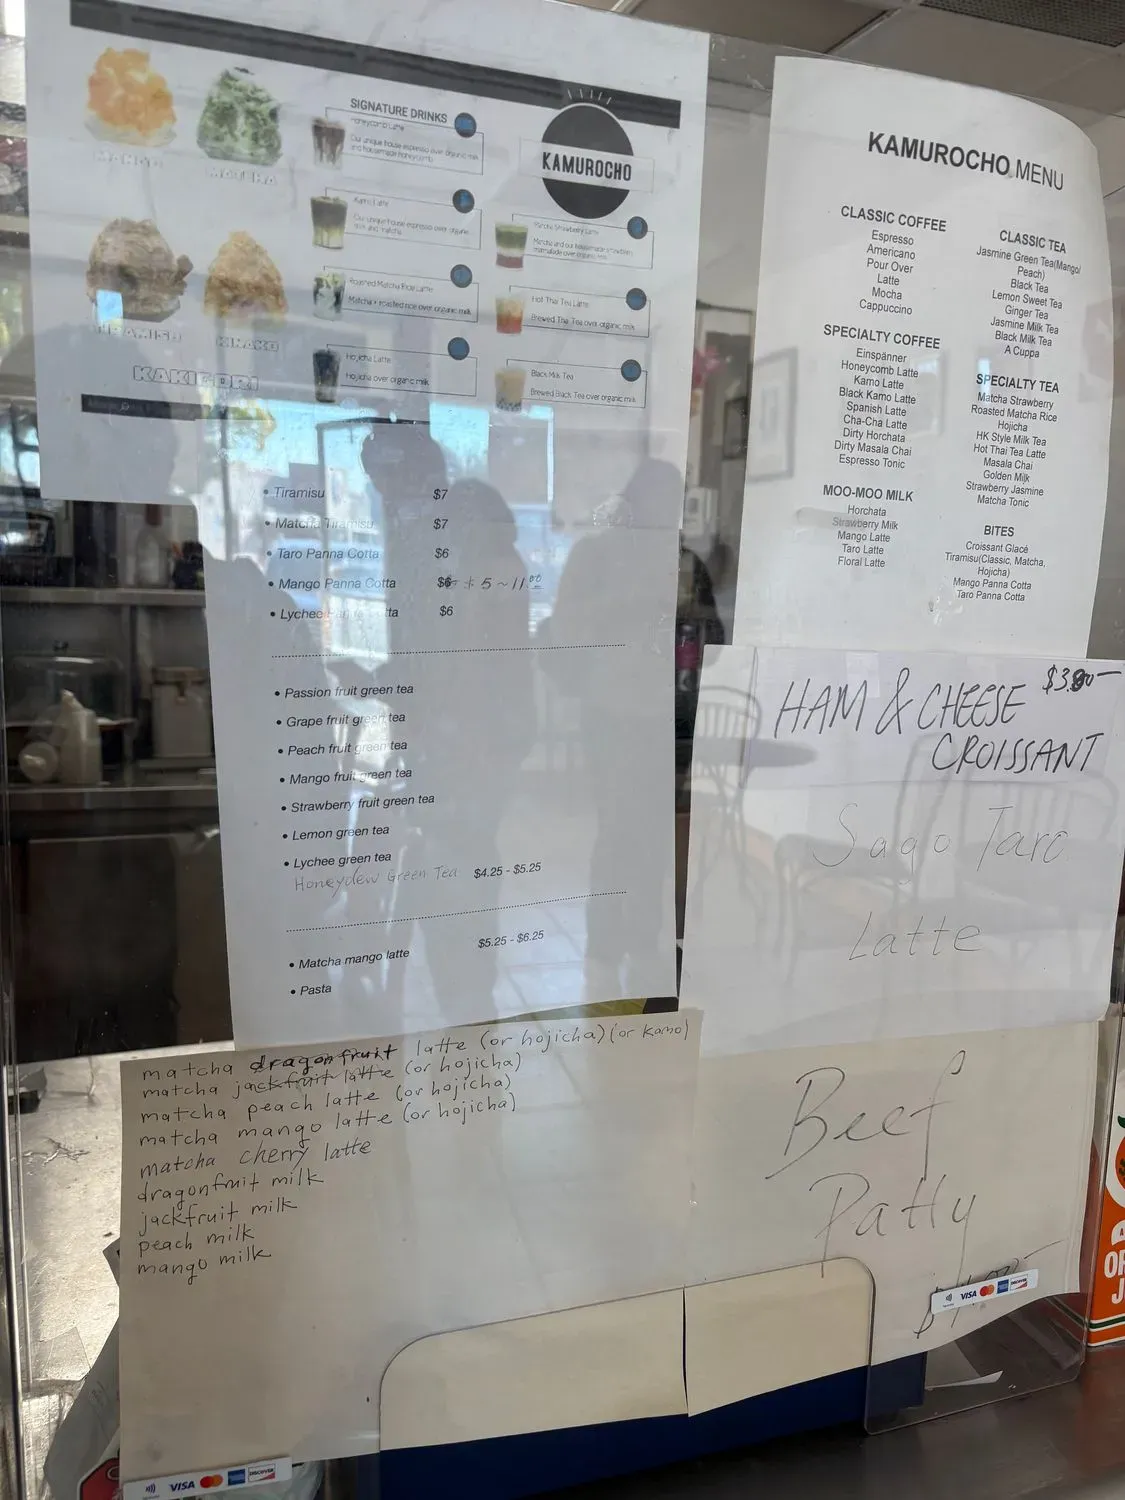 MANGO
MATCHA
TIRAMISU
KINAKO
KAKIGORI
SIGNATURE DRINKS
Honeycomb Latte
Our unique house espresso over organic milk
and housemade honeycomb
Kamo Latte
Our unique house espresso over organic
milk and matcha
Roasted Matcha Rice Latte
Matcha + roasted rice over organic milk
Hojicha Latte
Hojicha over organic milk
KAMUROCHO
Matcha Strawberry Latte
Matcha and our housemade strawberry
marmalade over organic milk
Hot Thai Tea Latte
Brewed Thai Tea over organic milk
Black Milk Tea
Brewed Black Tea over organic milk
• Tiramisu $7
• Matcha Tiramisu $7
• Taro Panna Cotta $6
• Mango Panna Cotta $6
5 ~ 11.00
• Lychee Panna Cotta $6
• Passion fruit green tea
• Grape fruit green tea
• Peach fruit green tea
• Mango fruit green tea
• Strawberry fruit green tea
• Lemon green tea
• Lychee green tea
Honeydew Green Tea $4.25 - $5.25
• Matcha mango latte $5.25 - $6.25
• Pasta
matcha dragonfruit latte (or hojicha) (or kamo)
matcha jackfruit latte (or hojicha)
matcha peach latte (or hojicha)
matcha mango latte (or hojicha)
matcha cherry latte
dragonfruit milk
jackfruit milk
peach milk
mango milk
VISA
DISCOVER
KAMUROCHO MENU
CLASSIC COFFEE
Espresso
Americano
Pour Over
Latte
Mocha
Cappuccino
SPECIALTY COFFEE
Einspänner
Honeycomb Latte
Kamo Latte
Black Kamo Latte
Spanish Latte
Cha-Cha Latte
Dirty Horchata
Dirty Masala Chai
Espresso Tonic
MOO-MOO MILK
Horchata
Strawberry Milk
Mango Latte
Taro Latte
Floral Latte
CLASSIC TEA
Jasmine Green Tea(Mango/
Peach)
Black Tea
Lemon Sweet Tea
Ginger Tea
Jasmine Milk Tea
Black Milk Tea
A Cuppa
SPECIALTY TEA
Matcha Strawberry
Roasted Matcha Rice
Hojicha
HK Style Milk Tea
Hot Thai Tea Latte
Masala Chai
Golden Milk
Strawberry Jasmine
Matcha Tonic
BITES
Croissant Glacé
Tiramisu(Classic, Matcha,
Hojicha)
Mango Panna Cotta
Taro Panna Cotta
HAM & CHEESE
CROISSANT
Sago Taro
Latte
Beef
Patty
VISA
DISCOVER